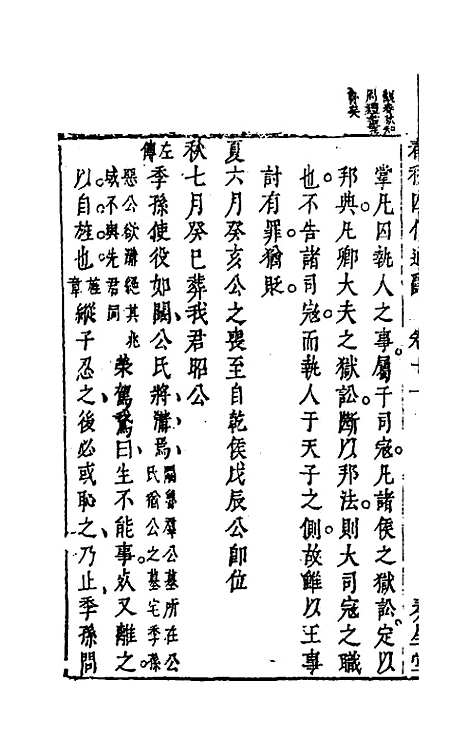 掌凡囚執人之事屬于司寇凡諸侯之獄訟定以
邦典凡卿大夫之獄訟斷以邦法則大司寇之職
也不告諸司寇而執人于天子之側故雖以王事
討有罪猶貶
夏六月癸亥公之喪至自乾侯戊辰公即位
秋七月癸巳葬我君昭公
左傳
季孫使役如闞公氏將溝焉
闞魯羣公墓所在公
氏猶公之墓宅季孫
惡公欲溝絕其兆
域不與先君同
榮駕鵞曰生不能事死又離之
以自旌也
旌
章
縱子忍之後必或恥之乃止季孫問